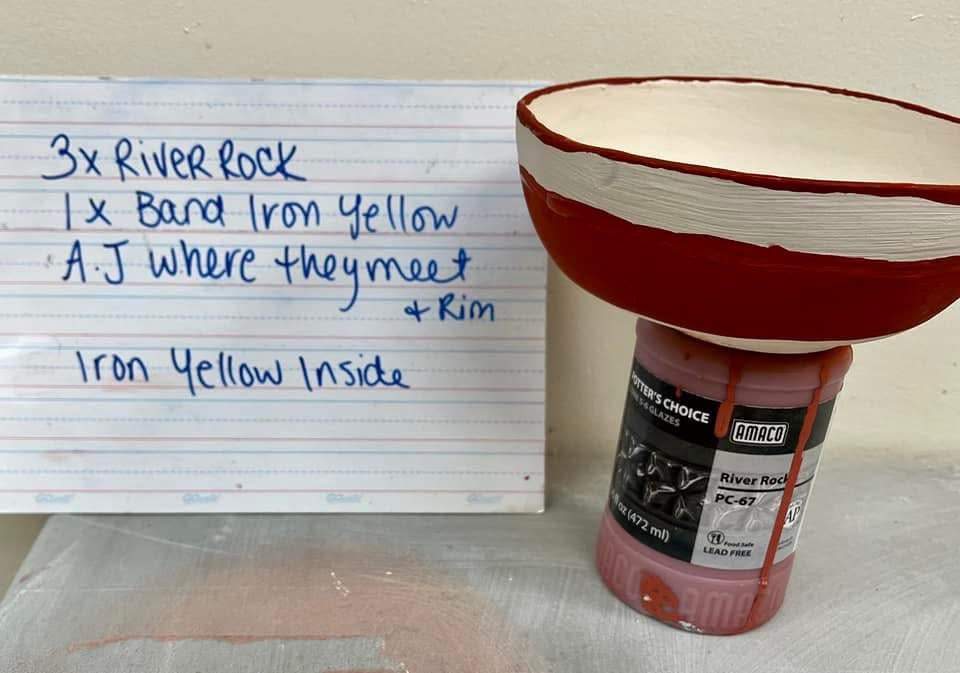 3x River Rock
1x Band Iron Yellow
A.J where they meet
+ Rim
Iron Yellow Inside
POTTER'S CHOICE
5-6 GLAZES
AMACO
River Rock
PC-67
oz (472 ml)
AP
Food Safe
LEAD FREE